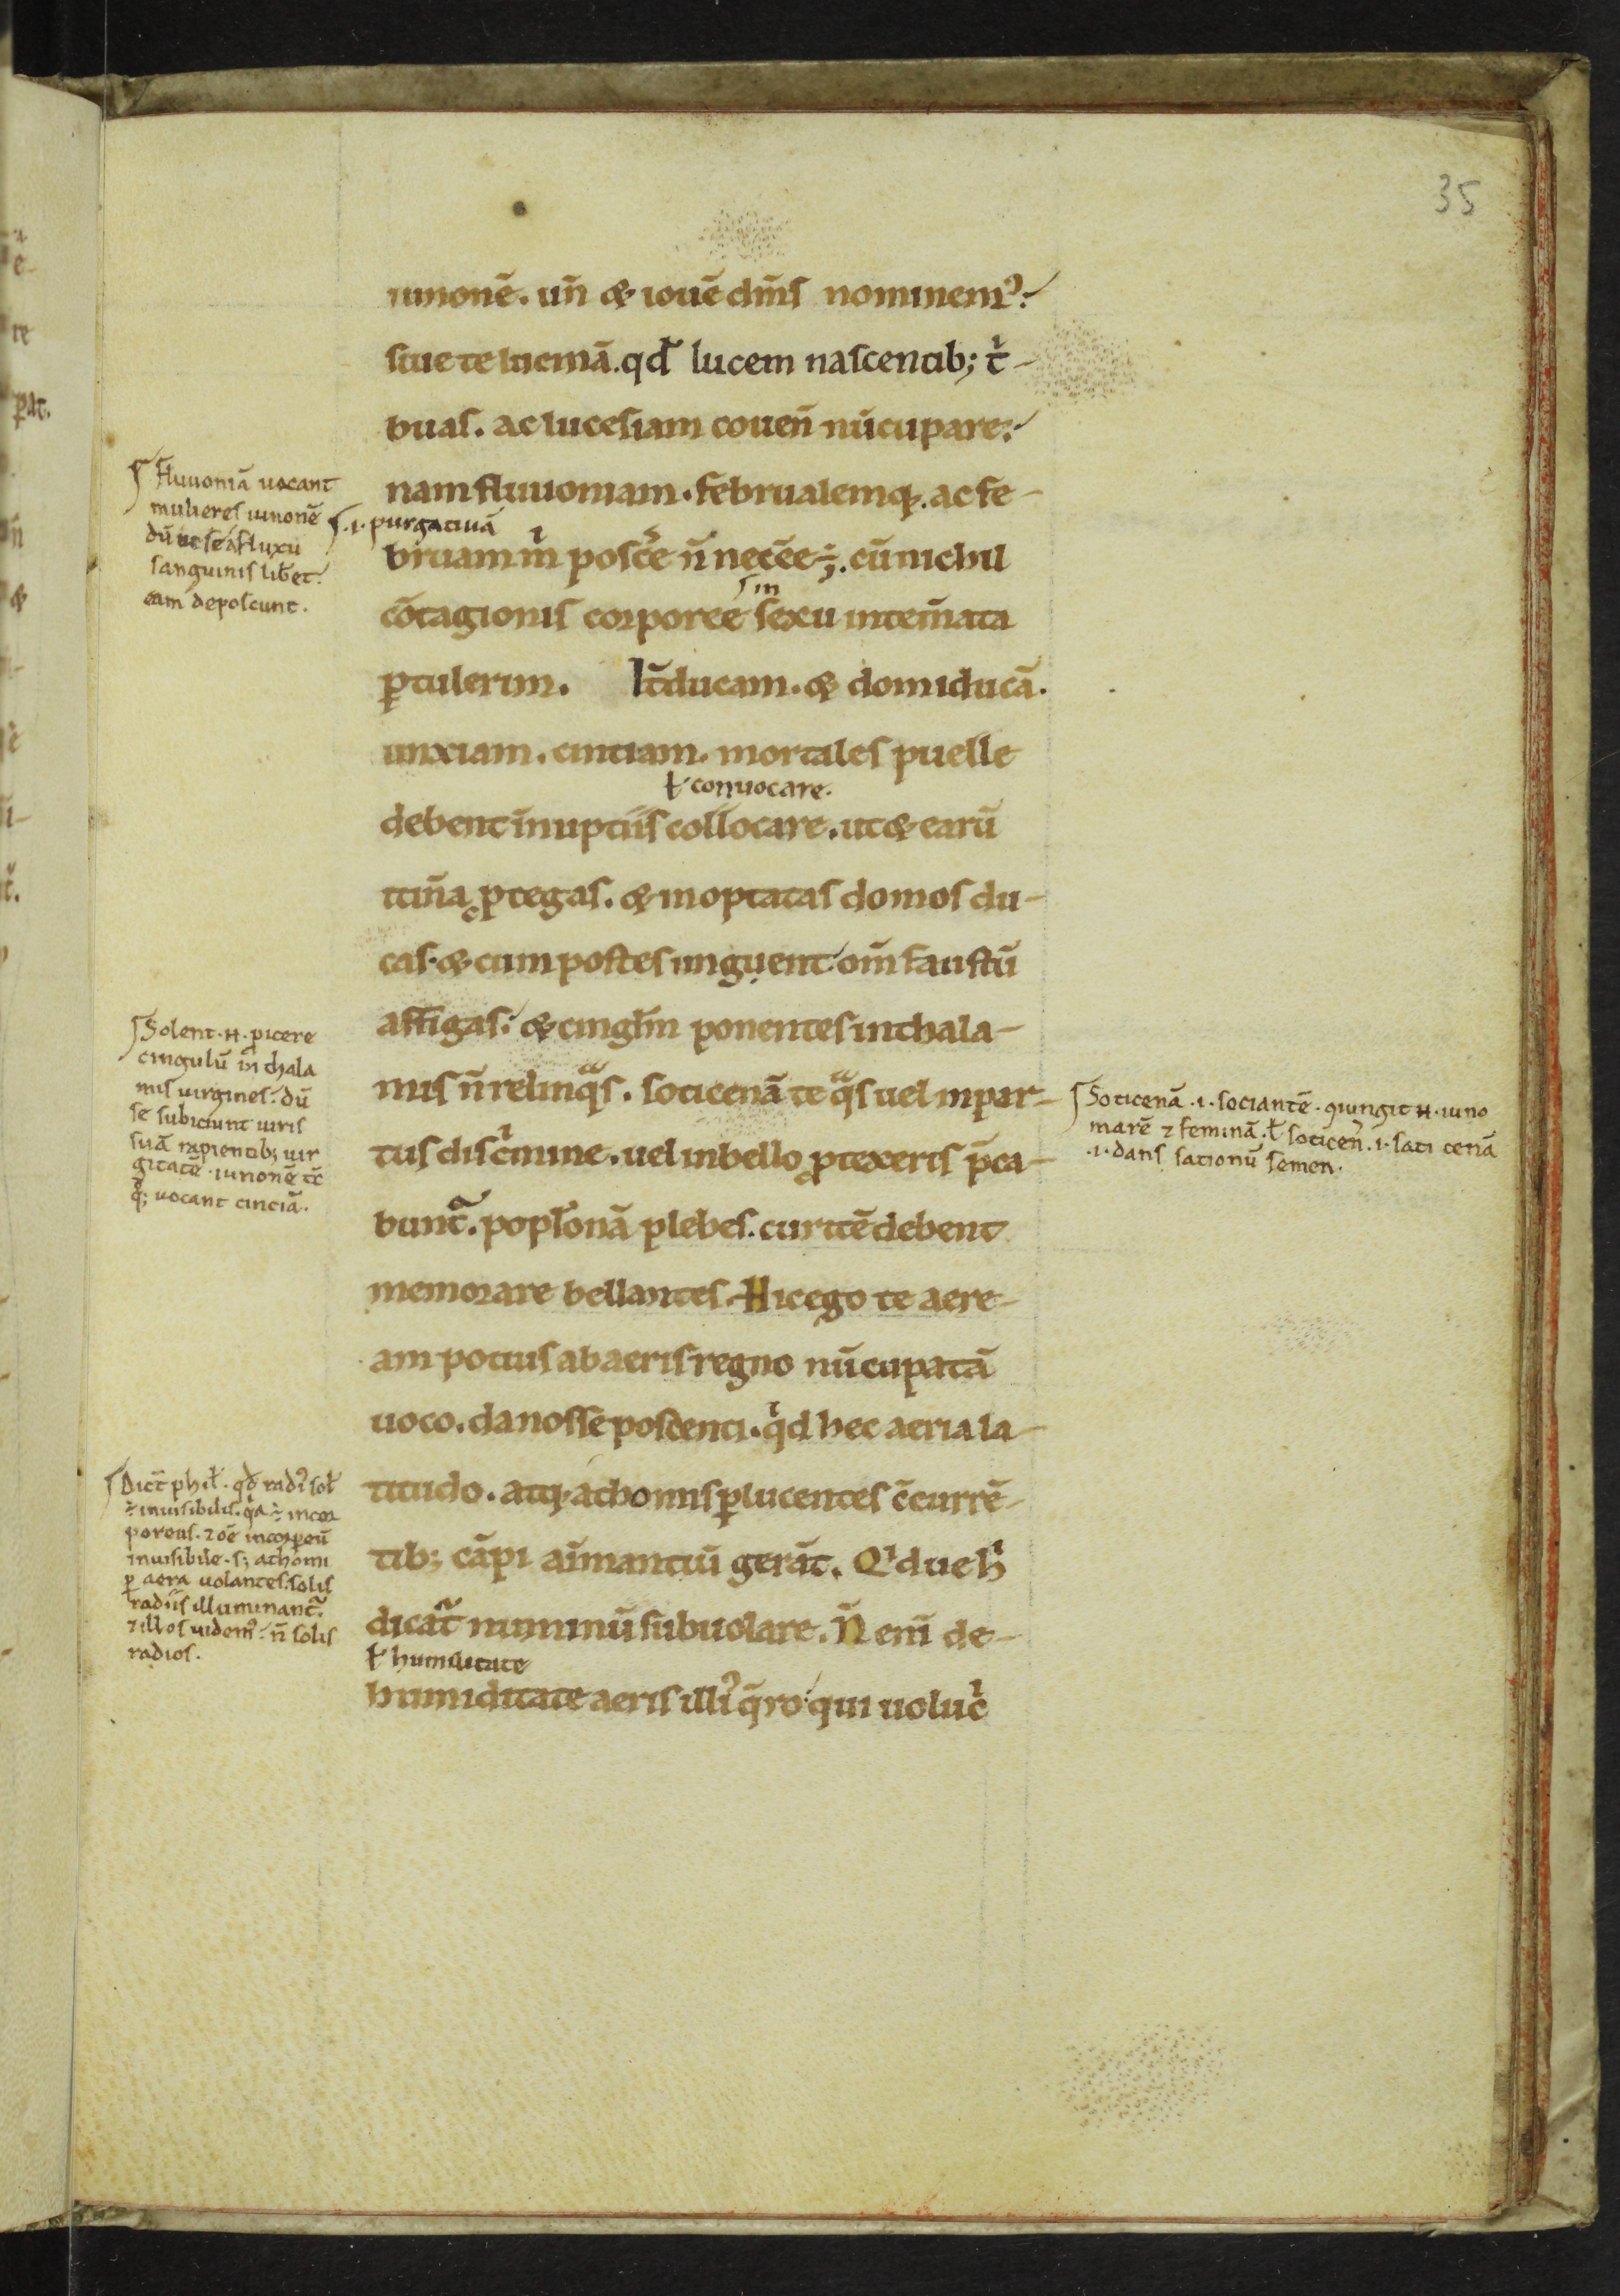 35
iunonē. un̄ & iouē dm̄s nominem᷒:
siue te lucinā. qd̄ lucem nascentib; tͥ-
buas. ac lucesiam couen̄ nūcupare:
nam fluuoniam. februalemq;. ac fe-
.i. purgatiuā
bruam m̄ poscͤe n̄ necēe ÷;. cū nichil
in
cōtagionis corporee sexu intem̄ata
ꝑtulerim. It̄ducam. & domiducā.
unxiam. cintiam. mortales puelle
ł conuocare.
debent ī nuptiis collocare. ut & earū
itin̄a ꝓtegas. & in optatas domos du-
cas. & cum postes unguent om̄ faustū
affigas. & cinglm̄ ponentes in thala-
mis n̄ relinqᷓs. soticenā te qᷓs uel in par-
tus discͥmine. uel in bello ꝓtexeris p̄ca-
bunt᷑. poplonā plebes. curitē debent
memorare bellantes. Hic ego te aere-
am potius ab aeris regno nūcupatā
uoco. da nosse poscenti. qͥd hec aeria la-
titudo. atq; athomis ꝑlucentes c̄currē-
tib; cāpi aīmantiū gerāt. Qͥdue hͥ
dicat᷑ numinū subuolare. N̄ enī de-
ł humilitate
humiditate aeris illi᷒ q̄ro qui uolucͥ
Fluuoniā uocant
mulieres iunonē
dū ut se a fluxu
sanguinis libet.
eam deposcunt.
Solent .n. ꝓicere
cingulū in thala
mis uirgines. dū
se subiciunt uiris
suā rapientib; uir
gitatē. iunonē tc̄
qͦq; uocant cinciā.
Soticenā .i. sociantē. ꝯiungit .n. iuno
marē ⁊ feminā. ł soticen̄ .i. sati cenā
.i. dans sationū semen.
Dict̄ phił. qd̄ radi᷒ soł
÷ inuisibilis. qͣa ÷ incor
poreus. ⁊ oē incorpeū
inuisibile. s; athomi
ꝑ aera uolantes. solis
radiis illuminant᷑.
⁊ illos uidem᷒. n̄ solis
radios.